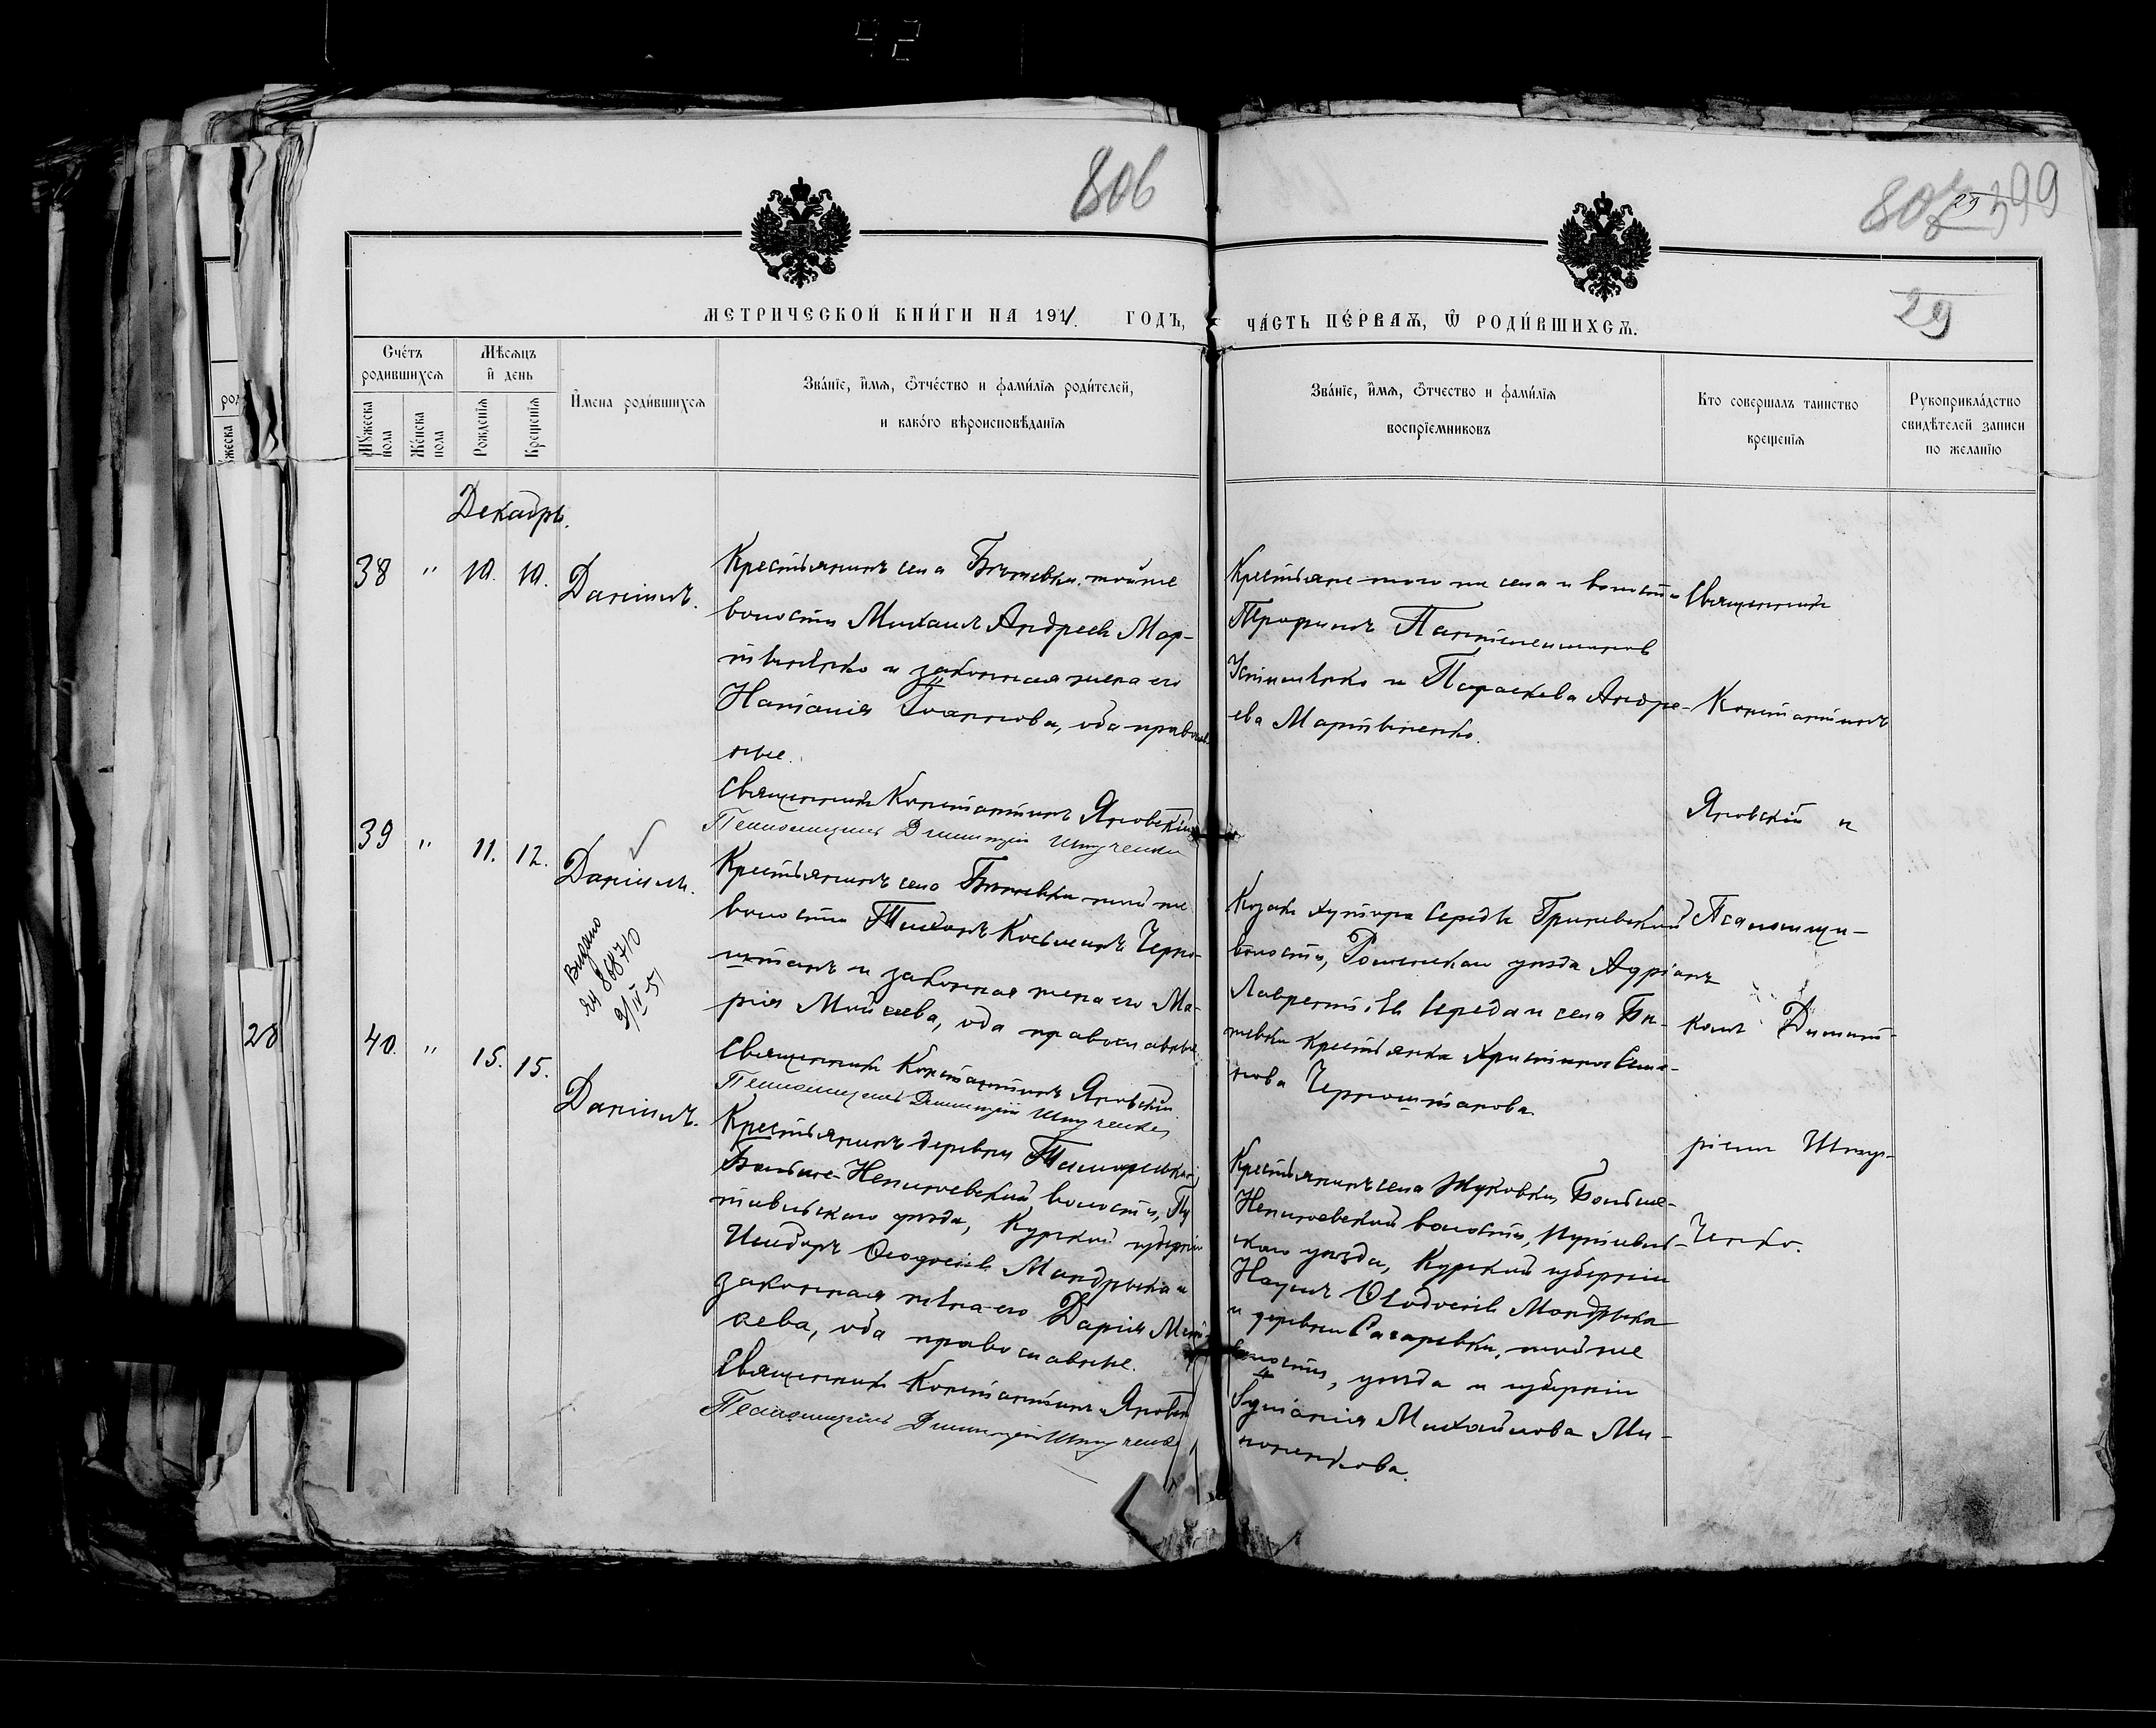 806
807 29 399
29
МЕТРИЧЕСКОЙ КНИ́ГИ НА 1911. ГОДЪ,
ЧА́СТЬ ПЕ́РВАѦ, Ѿ РОДИ́ВШИХСѦ.
Сче́тъ родившихсѧ
Мꙋжеска пола
Же́нска пола
Мѣсѧцъ и҆ день
Рожденїѧ
Крещенїѧ
И҆мена роди́вшихсѧ
Зва́нїе, и҆́мѧ, ѻ҆тче́ство и фами́лїѧ роди́телей,
и како́го вѣроисповѣ́данїѧ
Зва́нїе, и҆́мѧ, ѻ҆тчество и фами́лїѧ
воспрїемниковъ
Кто совершалъ таинство
крещенїѧ
Рукоприкла́дство
свидѣ́телей записи
по желанїю
Декабрь.
38 " 10. 10. Даніилъ.
Крестьянинъ села тойже
волости Михаилъ Андреев Мар-
тыненко и законная жена его
Наталія Іоаннова, оба православ-
ные.
Священникъ Константинъ Яновскій
Псаломщикъ Димитрій Шпученко
Крестьяне того же села и волости
Трофимъ Пантелеимонов
Устименко и Параскева Андре-
ева Мартыненко.
Священникъ
Константинъ
Яновскій и
Псаломщи-
къ Димит-
ріемъ Шпу-
ченко.
39 " 11. 12. Даніилъ.
Видано
яц 868710
2/IV 51
Крестьянинъ села той же
волости Тихонъ Косьминъ Черно-
штанъ и законная жена его Ма-
рія Мойсеева, оба православные.
Священникъ Константинъ Яновскій
Псаломщикъ Димитрій Шпученко
Козакъ хутора Середы Гриневской
волости, Роменскаго уезда Адріанъ
Лаврентіев Середа и села
крестьянка Христина Симо-
нова Черноштанова.
40. " 15. 15. Даніилъ.
Крестьянинъ деревни
Волости, Пу-
тивльскаго уезда, Курской губерніи
Исидоръ Ѳеодосіев Мандрыка и
законная жена его Дарія
оба православные.
Священникъ Константинъ Яновскій
Псаломщикъ Димитрій Шпученко
Крестьянинъ села Жуковки
волости, Путивль-
скаго уезда, Курской губерніи
Наумъ Ѳеодосіев Мандрыка
и деревни той же
волости, уезда и губерніи
Михайлова
28